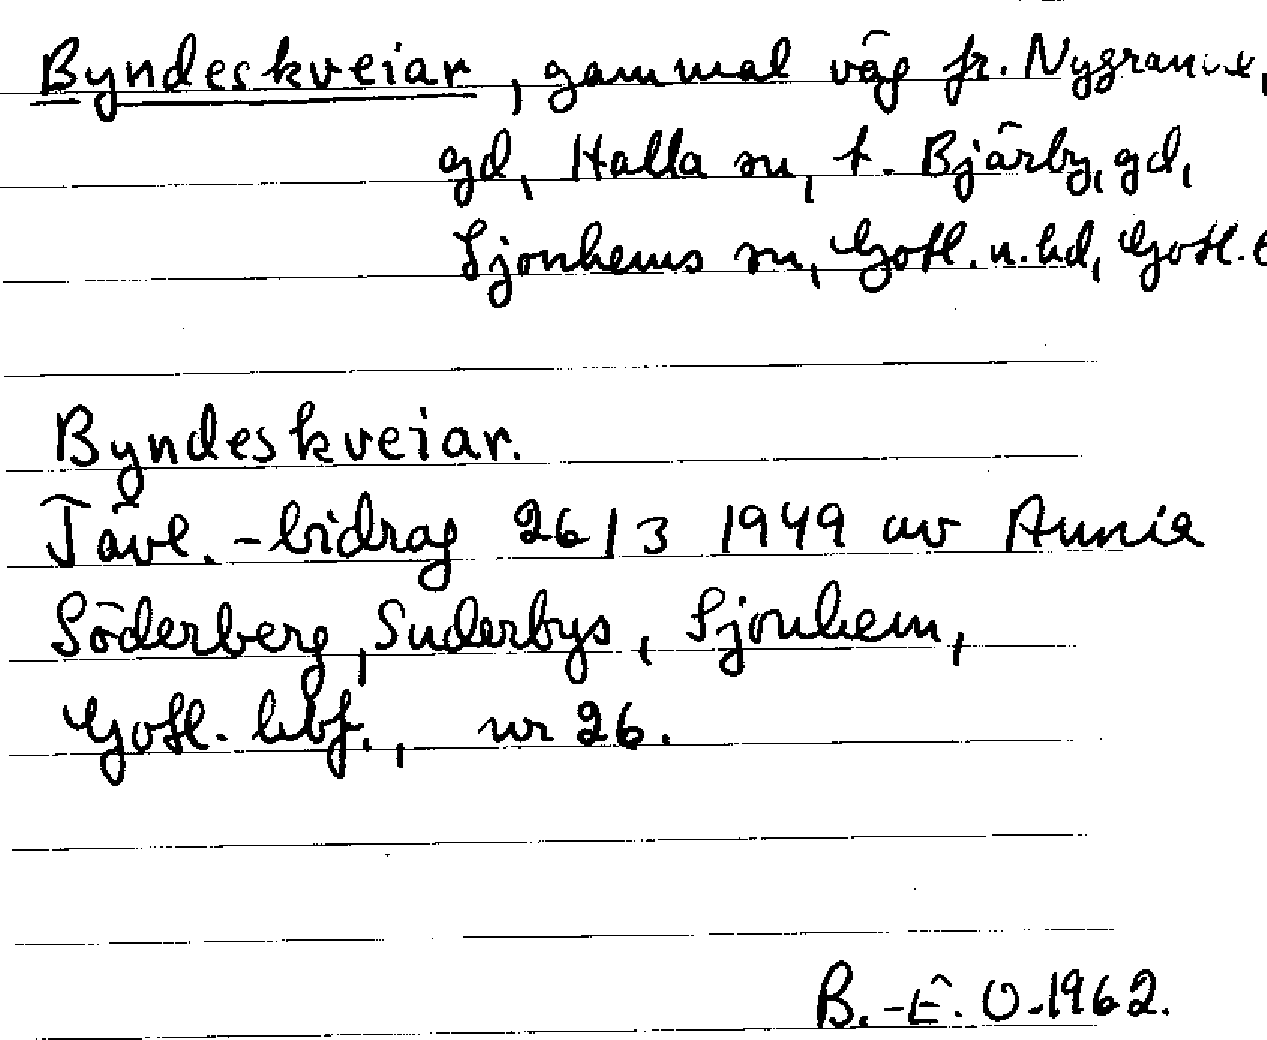 Byndeskveiar, gammal väg fr. Nygranne,
gd, Halla sn, t. Bjärby, gd,
Sjonhems sn, Gotl. n. hd, Gotl.
Byndeskveiar.
Tävl.-bidrag 26/3 1949 av Annie
Söderberg, Suderbys, Sjonhem,
Gotl. hbf., nr 26.
B.-E. O. 1962.